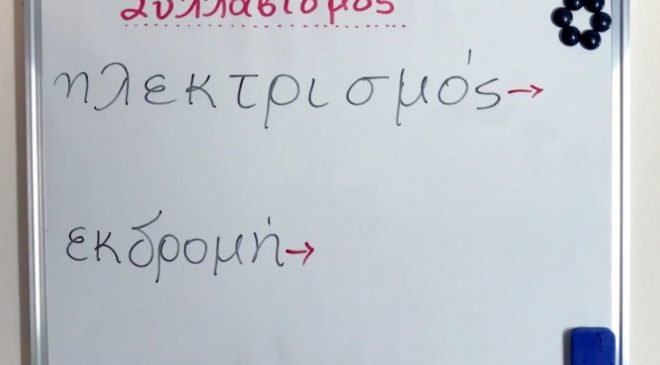 Συλλαβισμός
ηλεκτρισμός→
εκδρομή→